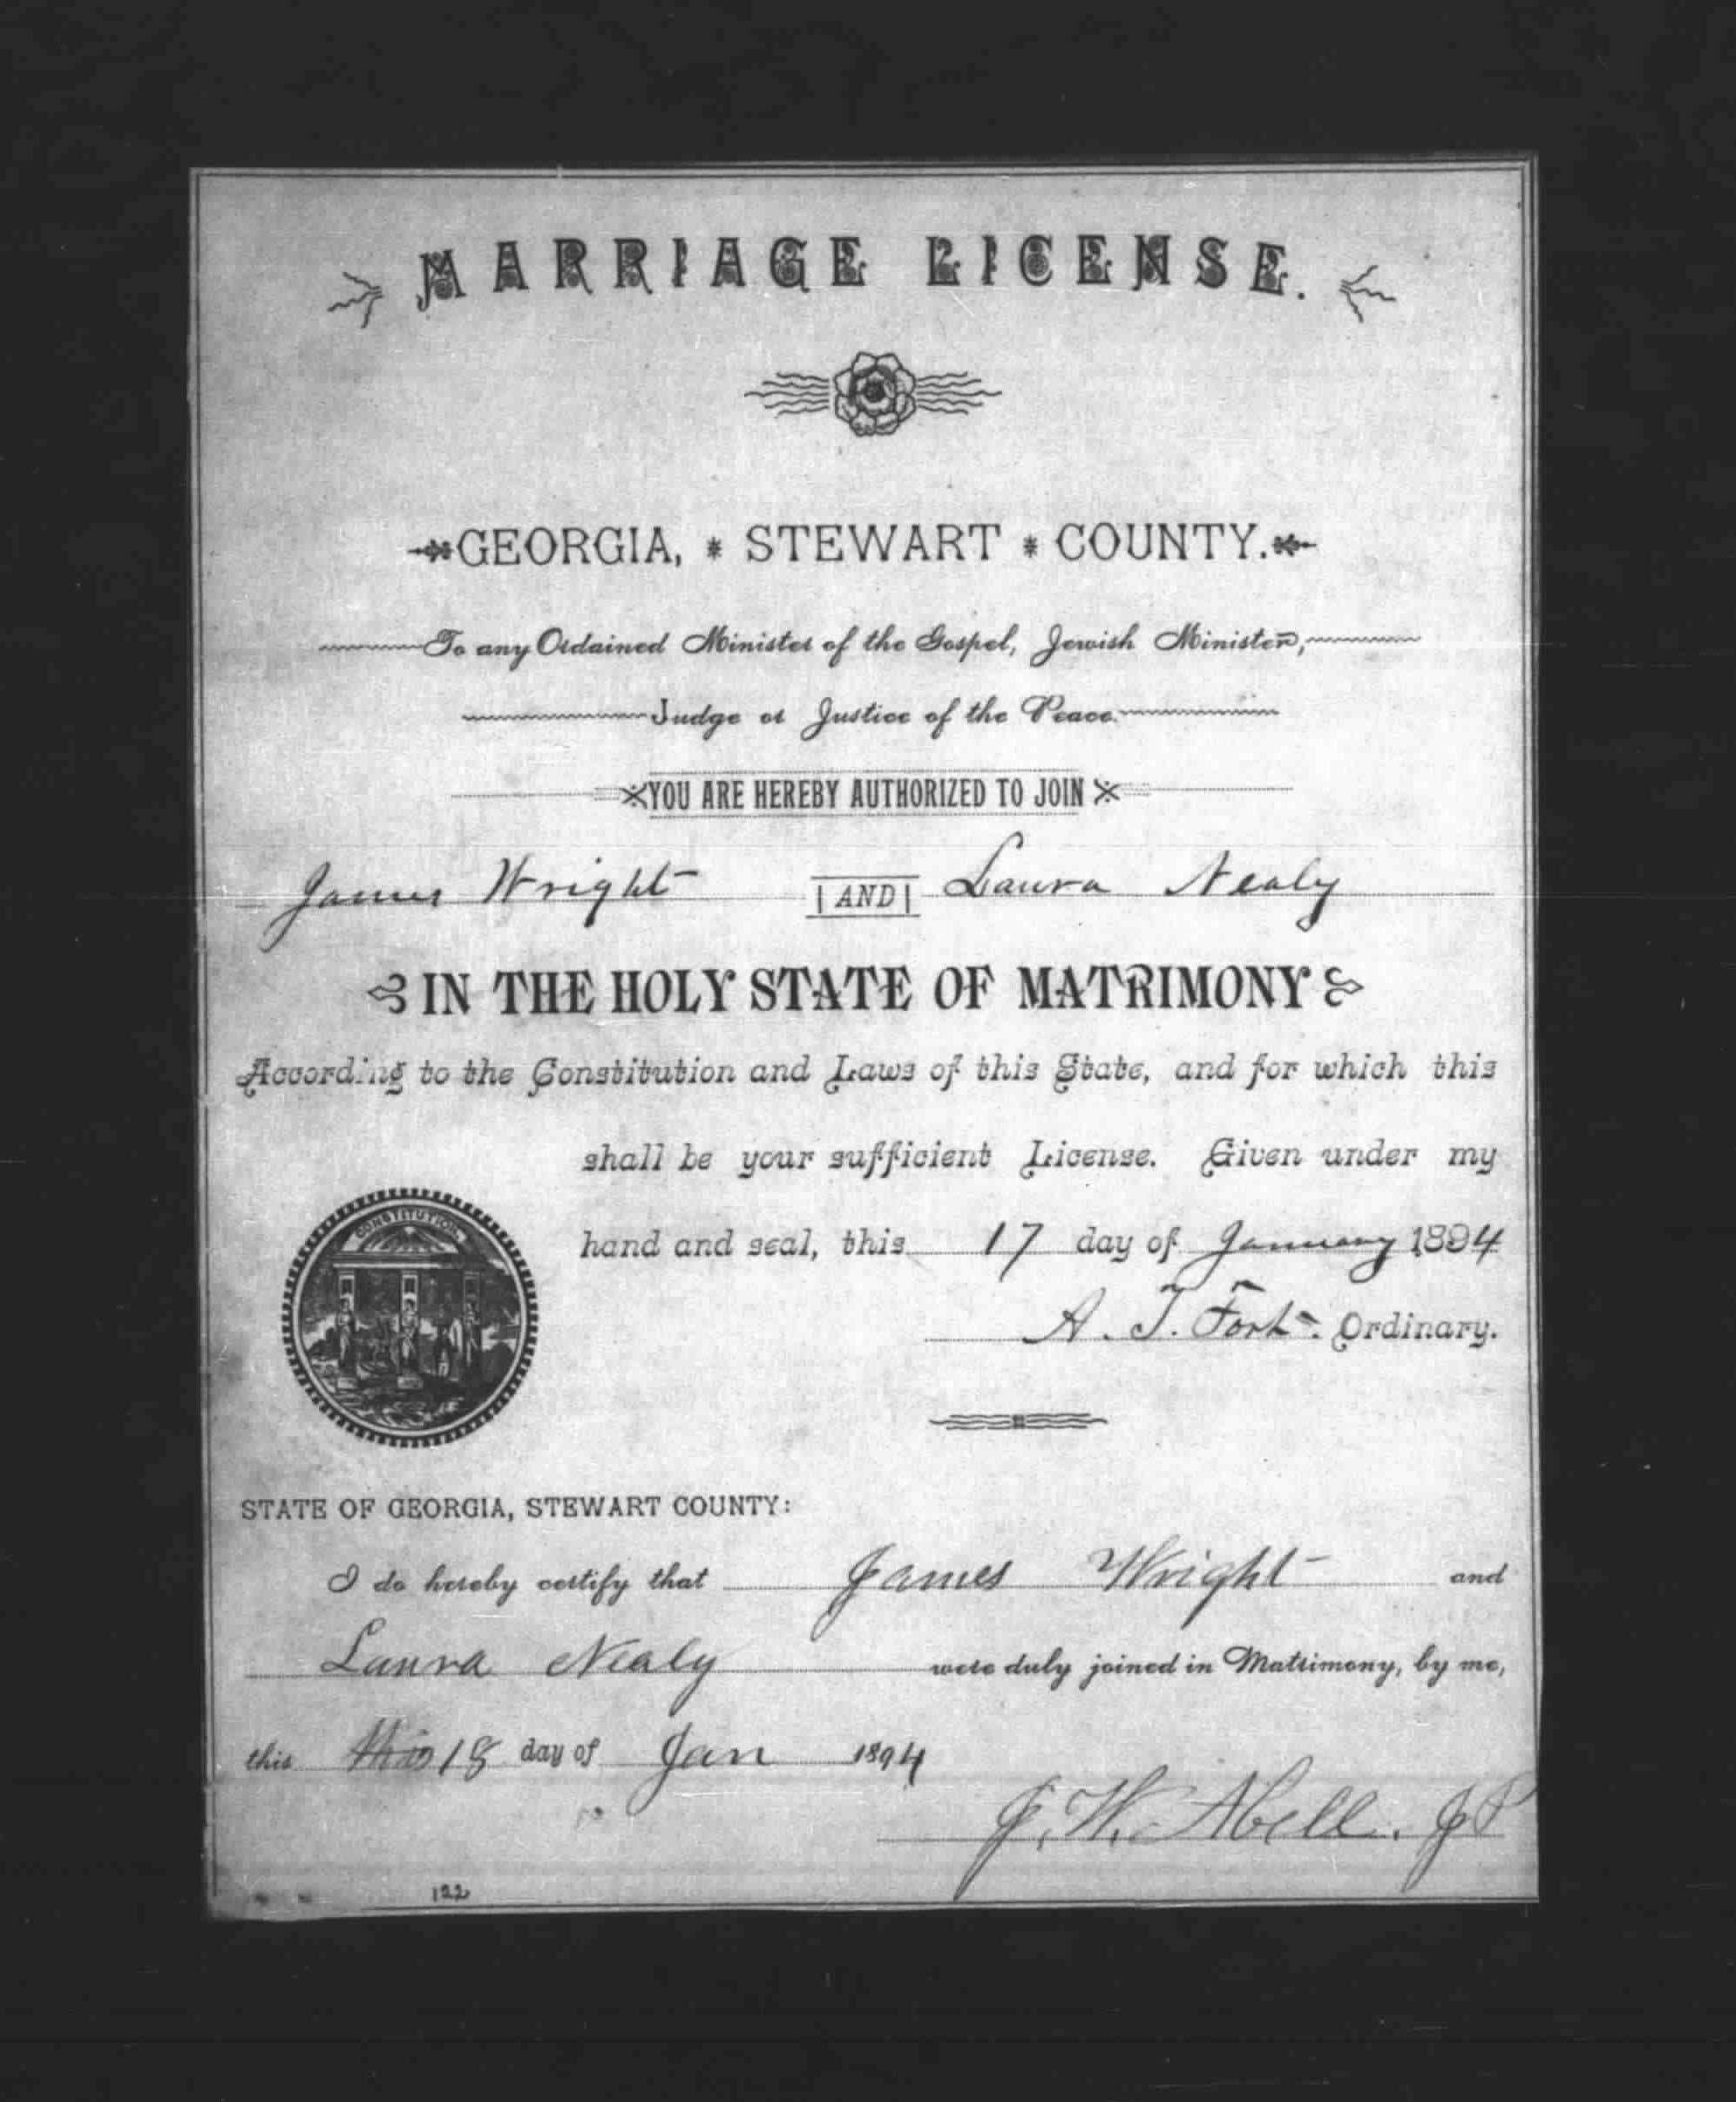 MARRIAGE LICENSE.
GEORGIA, * STEWART * COUNTY.
To any Ordained Minister of the Gospel, Jewish Minister,
Judge or Justice of the Peace.
YOU ARE HEREBY AUTHORIZED TO JOIN
James Wright AND Laura Nealy
IN THE HOLY STATE OF MATRIMONY
According to the Constitution and Laws of this State, and for which this
shall be your sufficient License. Given under my
CONSTITUTION
hand and seal, this 17 day of January 1894
A. T. Fort. Ordinary.
STATE OF GEORGIA, STEWART COUNTY:
I do hereby certify that James Wright and
Laura Nealy were duly joined in Matrimony, by me,
this this 18 day of Jan 1894
J. W. Abell. JP
122